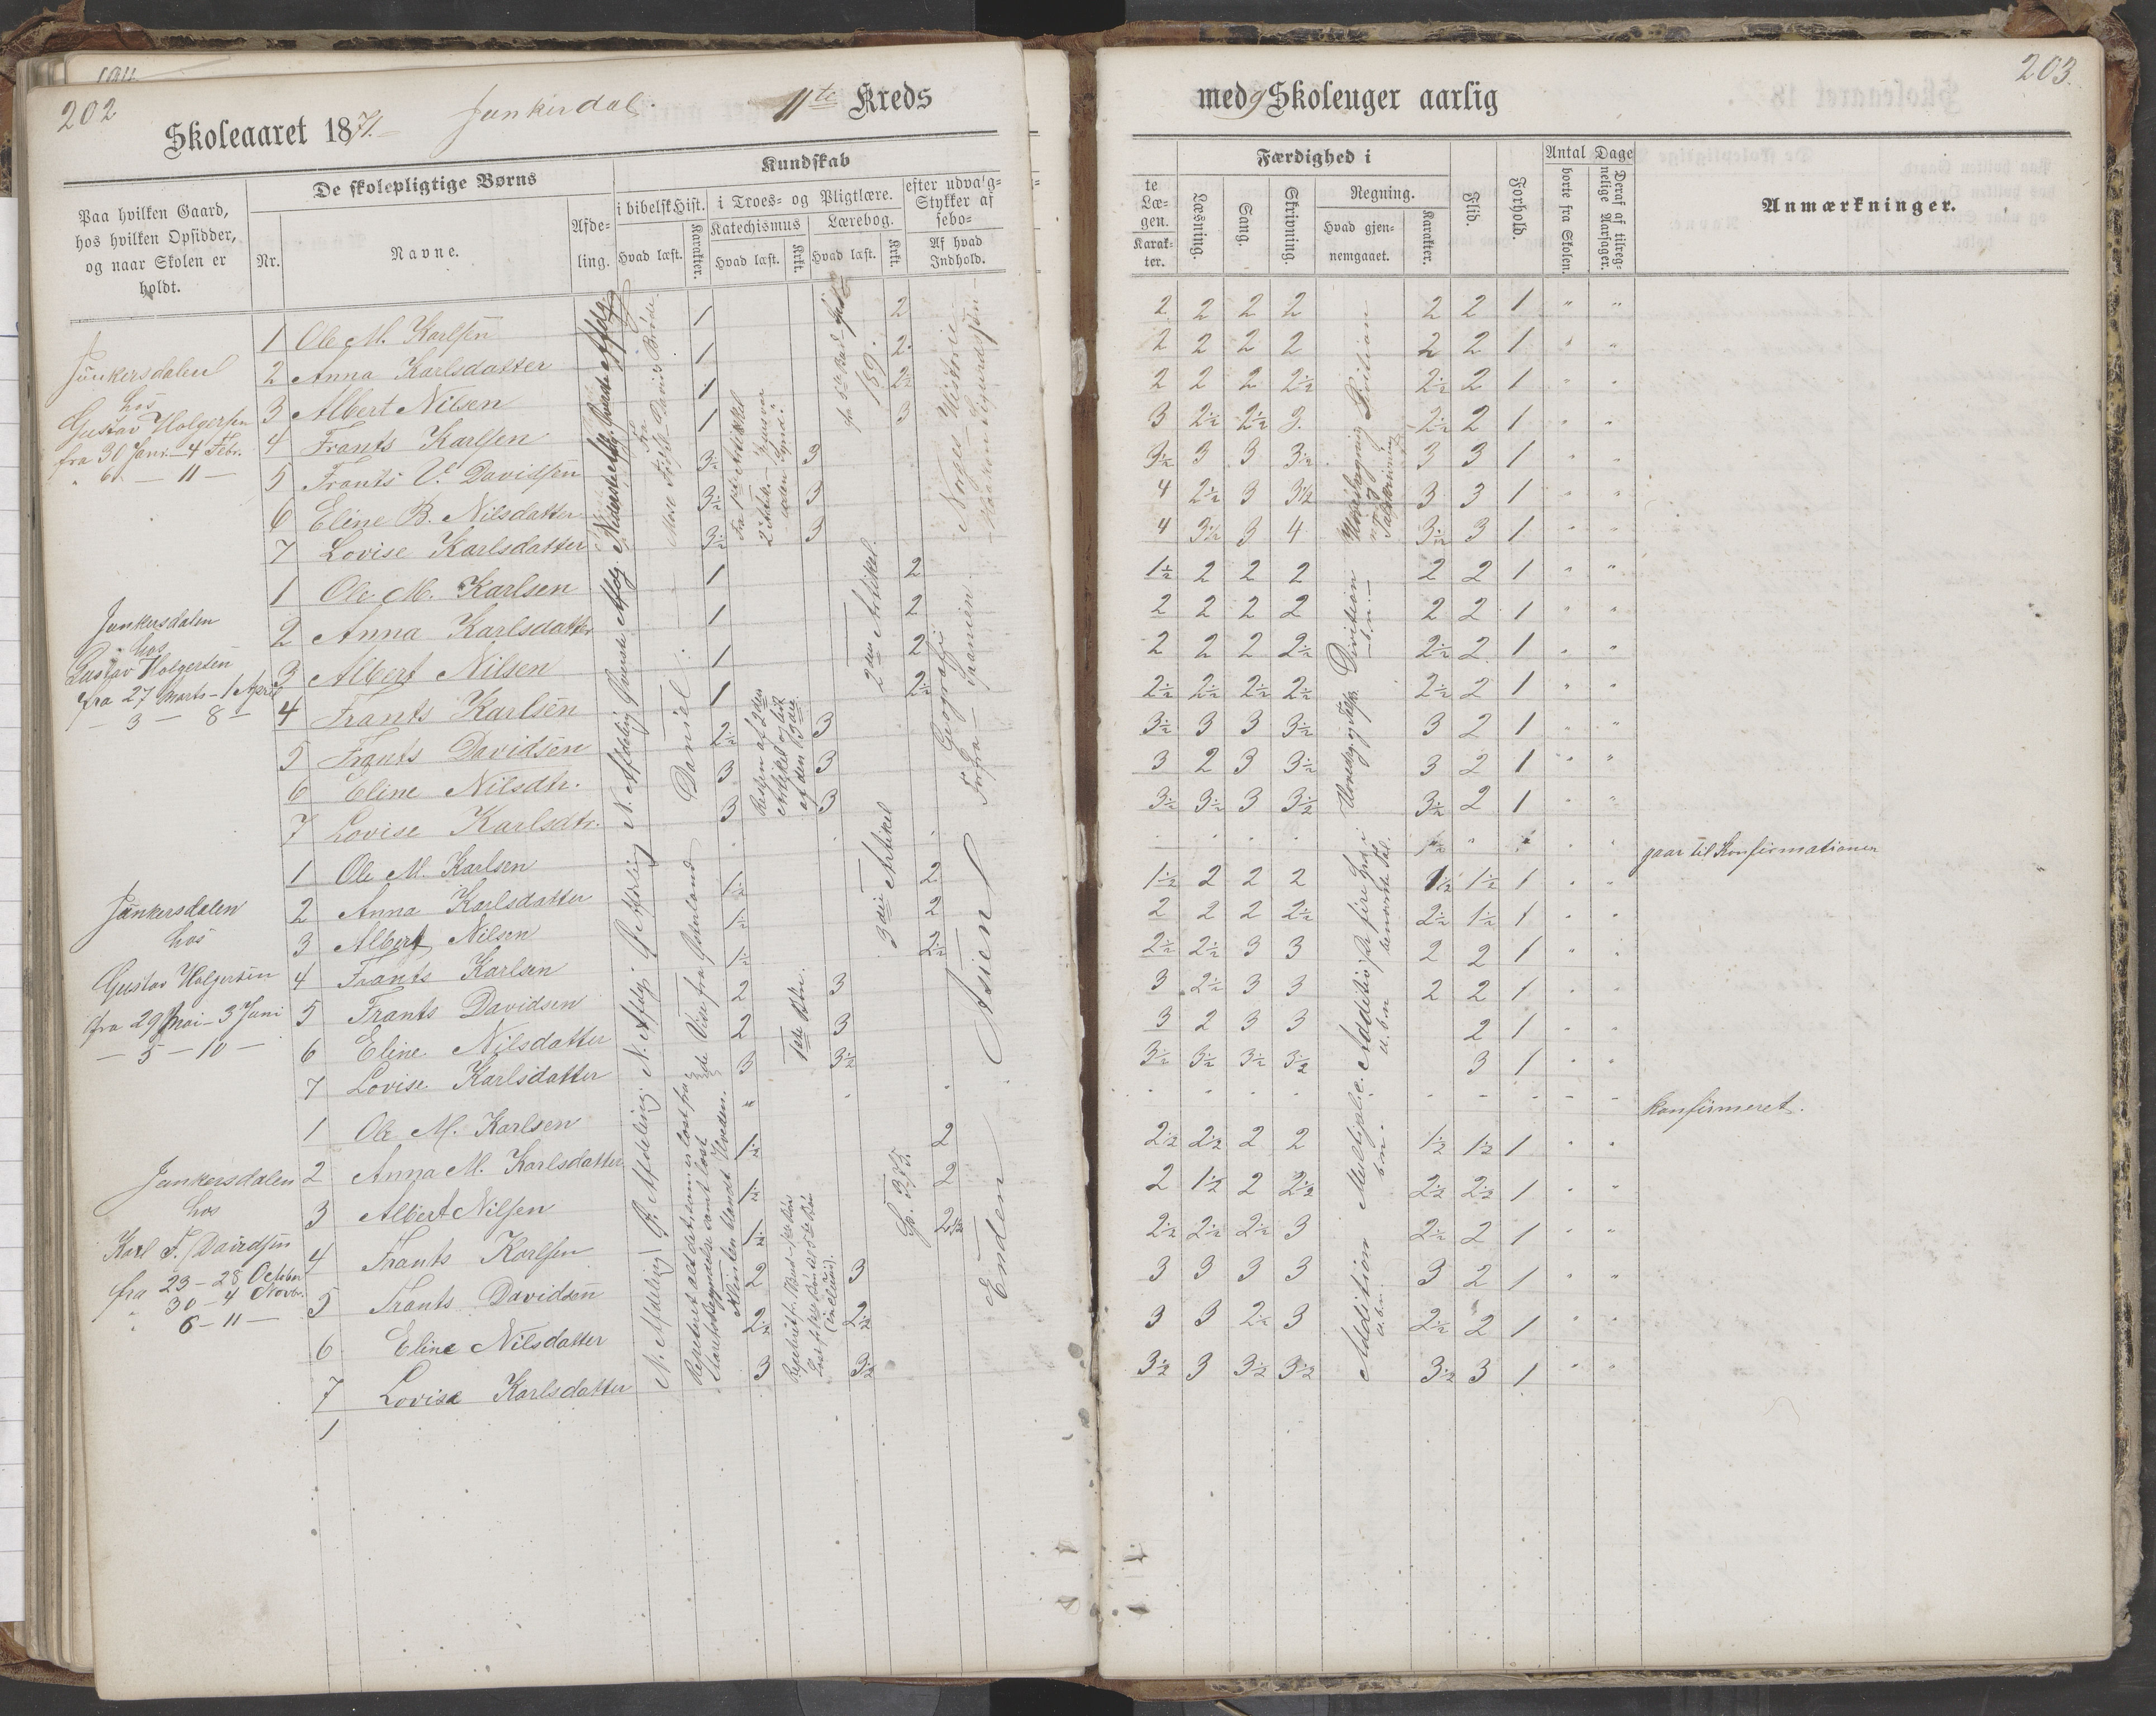 202
Skoleaaret 1871. Junkersdal. 11te Kreds
Paa hvilken Gaard, hos hvilken Opsidder, og naar Skolen er holdt.
De skolepligtige Børns
Nr.
Navne.
Afdeling.
Kundskab
i bibelsk Hist.
Hvad læst.
Karakter.
i Troes- og Pligtlære.
Katechismus
Hvad læst.
Krkt.
Lærebog.
Hvad læst.
Krkt.
efter udvalg-
Stykker af
sebo-
Af hvad Indhold.
Junkersdalen
hos
Gustav Holgersen
fra 30 Janr. - 4 Febr.
" 6 - 11 -
1 Ole M. Karlsen 1 2
2 Anna Karlsdatter 1 2
3 Albert Nilsen 1 2½
4 Frants Karlsen 1 3
5 Frants Davidsen 3½ 3
6 Eline B. Nilsdatter 3½ 3
7 Lovise Karlsdatter 3½ 3
Norges Historie
Junkersdalen
hos
Gustav Holgersen
fra 27 Marts - 1 April
- 3 - 8 -
1 Ole M. Karlsen 1 2
2 Anna Karlsdatter 1 2
3 Albert Nilsen 1 2
4 Frants Karlsen 1 2½
5 Frants Davidsen 2½ 3
6 Eline Nilsdtr. 3 3
7 Lovise Karlsdtr. 3 3
Daniel
Resten af 2den Artikel og lidt af den 3die
2den Artikel
Geografi
Spanien
Junkersdalen
hos
Gustav Holgersen
fra 29 Mai - 3 Juni
- 5 - 10 -
1 Ole M. Karlsen
2 Anna Karlsdatter 1½ 2
3 Albert Nilsen 1½ 2
4 Frants Karlsen 1½ 2½
5 Frants Davidsen 2 3
6 Eline Nilsdatter 2 3
7 Lovise Karlsdatter 3 3½
3die Artikel
Asien
Junkersdalen
hos
Karl F. Davidsen
fra 23 - 28 October
" 30 - 4 Novbr.
" 6 - 11 -
1 Ole M. Karlsen
2 Anna M. Karlsdatter 1½ 2
3 Albert Nilsen 1½ 2
4 Frants Karlsen 1½ 2½
5 Frants Davidsen 2 3
6 Eline Nilsdatter 2½ 2½
7 Lovise Karlsdatter 3 3½
1
Klinten blandt Hveden.
Enden
203.
med 9 Skoleuger aarlig
te Læ-
gen.
Karak-
ter.
Færdighed i
Læsning.
Sang.
Skrivning.
Regning.
Hvad gjen-
nemgaaet.
Karakter.
Flid.
Forhold.
Antal Dage
borte fra Skolen.
Deraf af tilreg-
nelige Aarsager.
Anmærkninger.
2 2 2 2 2 2 1 " "
2 2 2 2 2 2 1 " "
2 2 2 2½ 2½ 2 1 " "
3 2½ 2½ 3 2½ 2 1 " "
3½ 3 3 3½ 3 3 1 " "
4 2½ 3 3½ 3 3 1 " "
4 3½ 3 4 3½ 3 1 " "
1½ 2 2 2 2 2 1 " "
2 2 2 2 2 2 1 " "
2 2 2 2½ 2½ 2 1 " "
2½ 2½ 2½ 2½ 2½ 2 1 " "
3½ 3 3 3½ 3 2 1 " "
3 2 3 3½ 3 2 1 " "
3½ 3½ 3 3½ 3½ 2 1 " "
Division
gaar til Konfirmationen
1½ 2 2 2 1½ 1½ 1 " "
2 2 2 2½ 2½ 1½ 1 " "
2½ 2½ 3 3 2 2 1 " "
3 2½ 3 3 2 2 1 " "
3 2 3 3 2 1 " "
3½ 3½ 3½ 3½ 3 1 " "
konfirmeret.
2½ 2½ 2 2 1½ 1½ 1 " "
2 1½ 2 2½ 2½ 2½ 1 " "
2½ 2½ 2½ 3 2½ 2 1 " "
3 3 3 3 3 2 1 " "
3 3 2½ 3 2½ 2 1 " "
3½ 3 3½ 3½ 3½ 3 1 " "
Addition